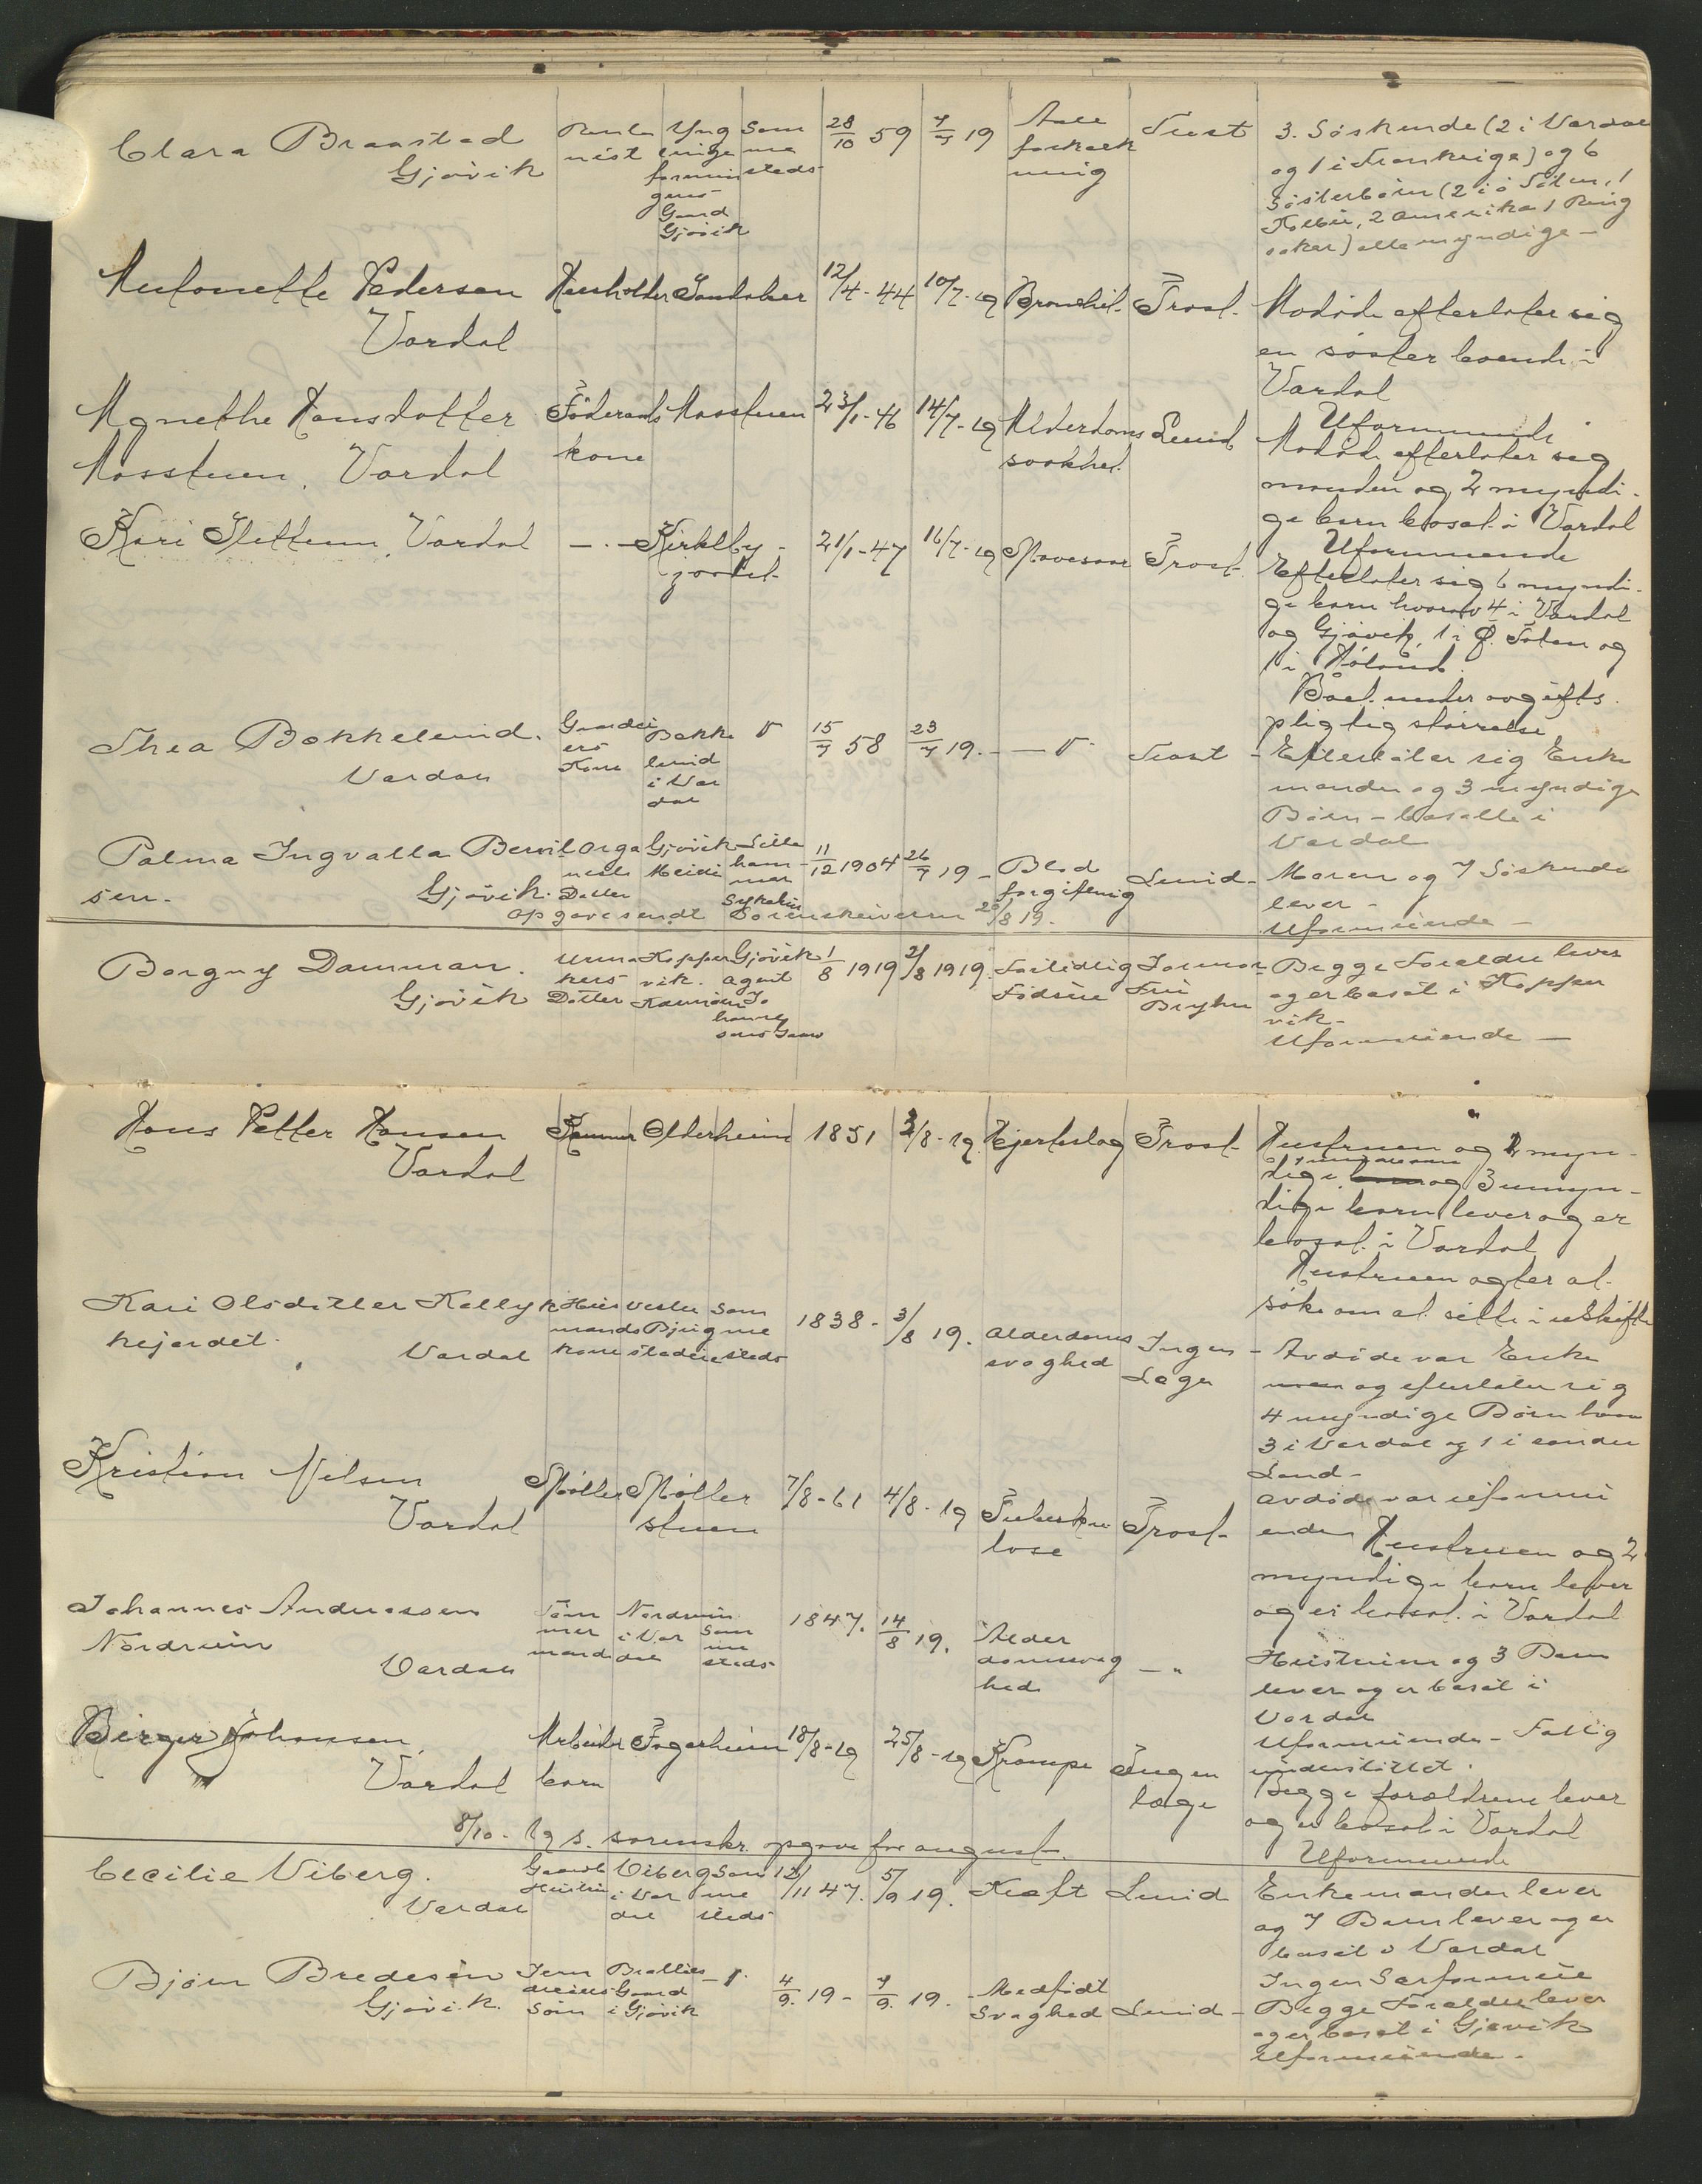 Clara Braastad
Gjøvik
Rentenist
Ynglingeforeningens Gaard Gjøvik
Sammesteds
28/10 59
7/7 19
Aareforkalkning
Trost
3. Søskende (2 i Vardal
og 1 i Frankrige) og 6
Søsterbørn (2 i ø Toten, 1
Kolbu, 2 Amerika 1 Ring
saker) alle myndige -
Antonette Pedersen
Vardal
Husholder
Sandaker
12/4-44
10/7-19
Bronchit.
Trost.
Avdøde efterlater sig
en søster boende i
Vardal
Uformuende
Agnethe Hansdatter
Aasstuen, Vardal
Føderaads
kone
Aasstuen
23/1-46
14/7-19
Alderdoms
svakhet
Lund
Avdøde efterlater sig
manden og 2 myndi-
ge barn bosat i Vardal
Uformuende
Kari Slettum, Vardal
— " —
Kirkeby-
jordet
21/1-47
16/7-19
Mavesaar
Trost.
Efterlater sig 6 myndi-
ge barn hvorav 4 i Vardal
og Gjøvik, 1 i Ø. Toten og
1 i Høland.
Boet under avgifts
pligtig størrelse
Thea Bakkelund.
Vardal
Gaardei
ers
Kone
Bakke
lund
i Var
dal
15/7 58
23/7 19.
Trost
- Efterlater sig Enke
manden og 3 myndige
Børn - bosatte i
Vardal
Palma Ingvalla Berntsen.
Gjøvik.
Datter
Gjøvik
Lille
ham
mer
Sykehus
11/12 1904
26/7 19 -
Blod
forgiftning
Lund -
Moren og 7 Søskende
lever -
Uformuende -
Opgave sendt Sorenskriveren 20/8 19.
Borgny Damman.
Gjøvik
Urma
kers
Datter
Kopper
vik.
Gjøvik
agent
Johannessens Gaard
1/8 1919
2/8 1919.
Fortidlig
Fødsel
Jormor
Fru
Bryhn
- Begge Foreldre lever
og er bosat i Kopper
vik -
Uformuende -
Hans Petter Hansen
Vardal
Olderheim
1851
3/8-19.
Hjerteslag
Trost.
Hustruen og 2 myn-
dige og 3 umyn-
dige barn lever og er
bosat i Vardal
Hustruen agter at
søke om at sitte i uskifte
Kari Olsdatter Kallyk
kejordet.
Vardal
Hus
mands
kone
Sam
me
steds
1838 -
3/8 19.
Alderdoms
svaghed
Ingen
Læge
- Avdøde var Enke
og efterlater sig
4 myndige Børn hvorav
3 i Vardal og 1 i søndre
Land -
Avdøde var uformu
ende
Kristian Nilsen
Vardal
Møller
Møller
stuen
7/8-61
4/8-19
Tuberku
lose
Trost.
Hustruen og 2
myndige barn lever
og er bosat i Vardal
Johannes Anderssen
Nordrum
Vardal
Tøm
mer
mand
Nordrum
i Var
dal
Sam
me
steds
1847.
14/8 19.
Alder
domssvag
hed
— "
Hustruen og 3 Barn
lever og er bosat i
Vardal
Uformuende - Fattig
understøttet.
Birger Johansen,
Vardal
Arbeider
barn
Fagerheim
18/8-19
25/8-19
Krampe
Ingen
læge
Begge forældrene lever
og er bosat i Vardal
Uformuende
8/10-19 s. sorenskr. opgave for august.
Cecilie Viberg.
Vardal
Gaardb
Hustru
Viberg
i Var
dal
Sam
me
steds
12/11 47.
5/9 19.
Kræft
Lund
Enkemanden lever
og 7 Barn lever og er
bosat i Vardal
Ingen Særformue
Bjørn Bredesen
Gjøvik.
Jern
dreiers
Søn
Gaard
i Gjøvik
4/9. 19 -
7/9. 19.
Medfødt
Svaghed
Lund
- Begge Foreldre lever
og er bosat i Gjøvik
Uformuende.